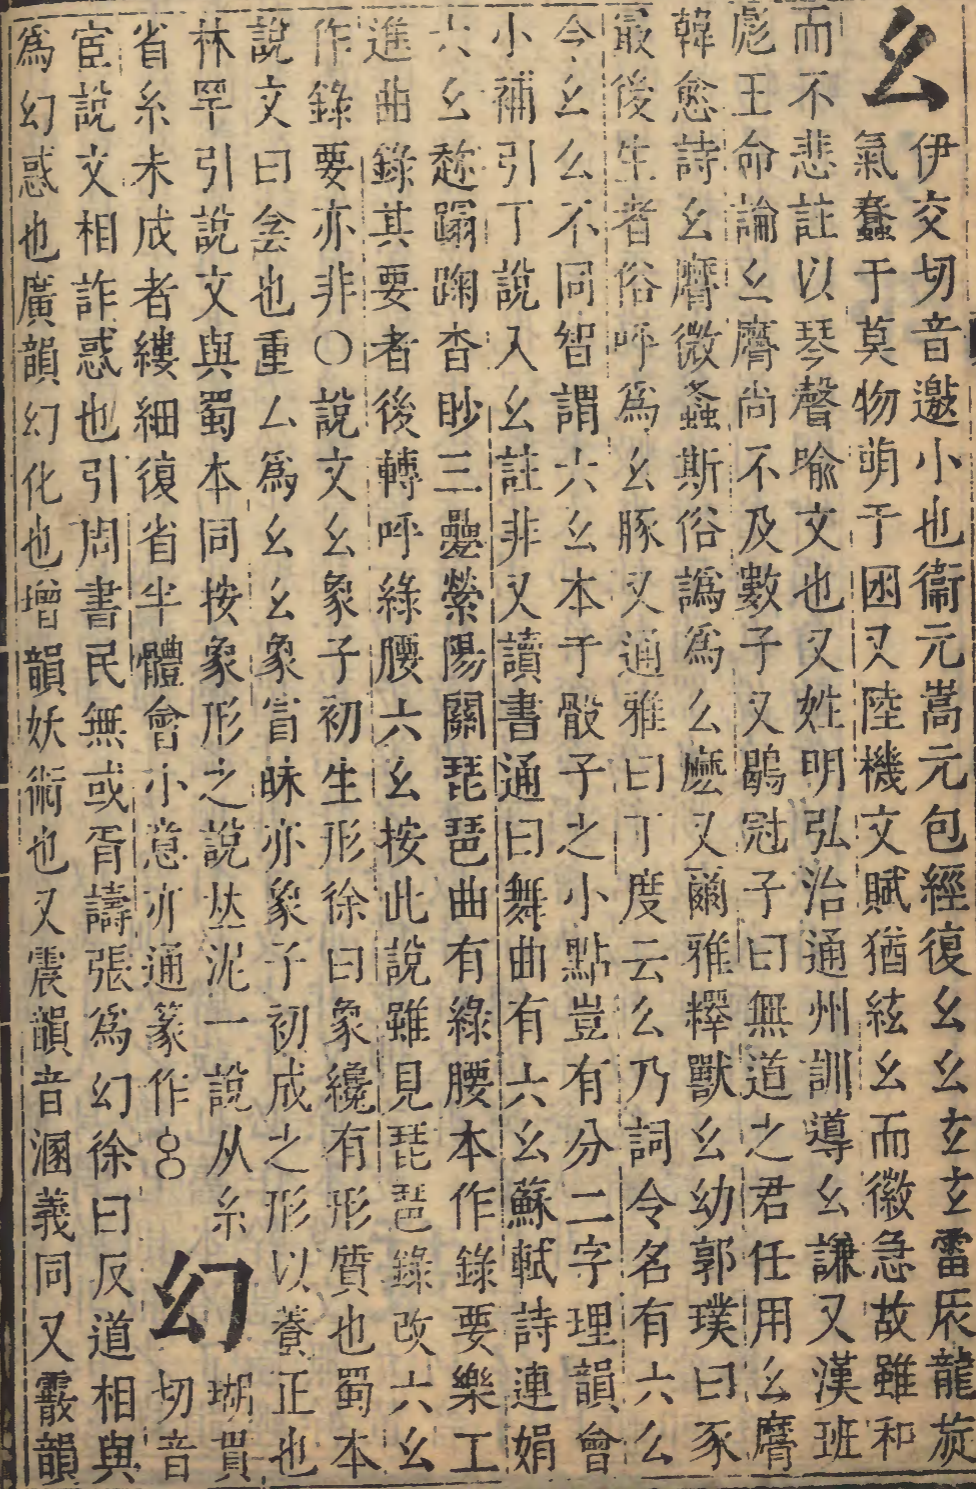 幺
伊交切音邀小也衞元嵩元包經復幺幺玄玄雷辰龍旋
氣蠢于莫物萌于困又陸機文賦猶絃幺而徽急故雖和
而不悲註以琴聲喻文也又姓明弘治通州訓導幺謙又漢班
彪王命論幺麿尚不及數子又鶡冠子曰無道之君任用幺麿
韓愈詩幺麿微螽斯俗譌爲么麼又爾雅釋獸幺幼郭璞曰豕
最後生者俗呼爲幺豚又通雅曰丁度云么乃詞令名有六么
今幺么不同智謂六幺本于骰子之小點豈有分二字理韻會
小補引丁說入幺註非又讀書通曰舞曲有六幺蘇軾詩連娟
六幺趂蹋踘杳眇三疊縈陽關琵琶曲有綠腰本作錄要樂工
進曲錄其要者後轉呼綠腰六幺按此說雖見琵琶錄改六幺
作錄要亦非○說文幺象子初生形徐曰象纔有形質也蜀本
說文曰侌也重厶爲幺幺象冒昧亦象子初成之形以養正也
林罕引說文與蜀本同按象形之說丛泥一說从糸
省糸未成者縷細復省半體會小意亦通篆作
幻
瑚貫
切音
宦說文相詐惑也引周書民無或胥譸張爲幻徐曰反道相與
爲幻惑也廣韻幻化也增韻妖術也又震韻音溷義同又霰韻